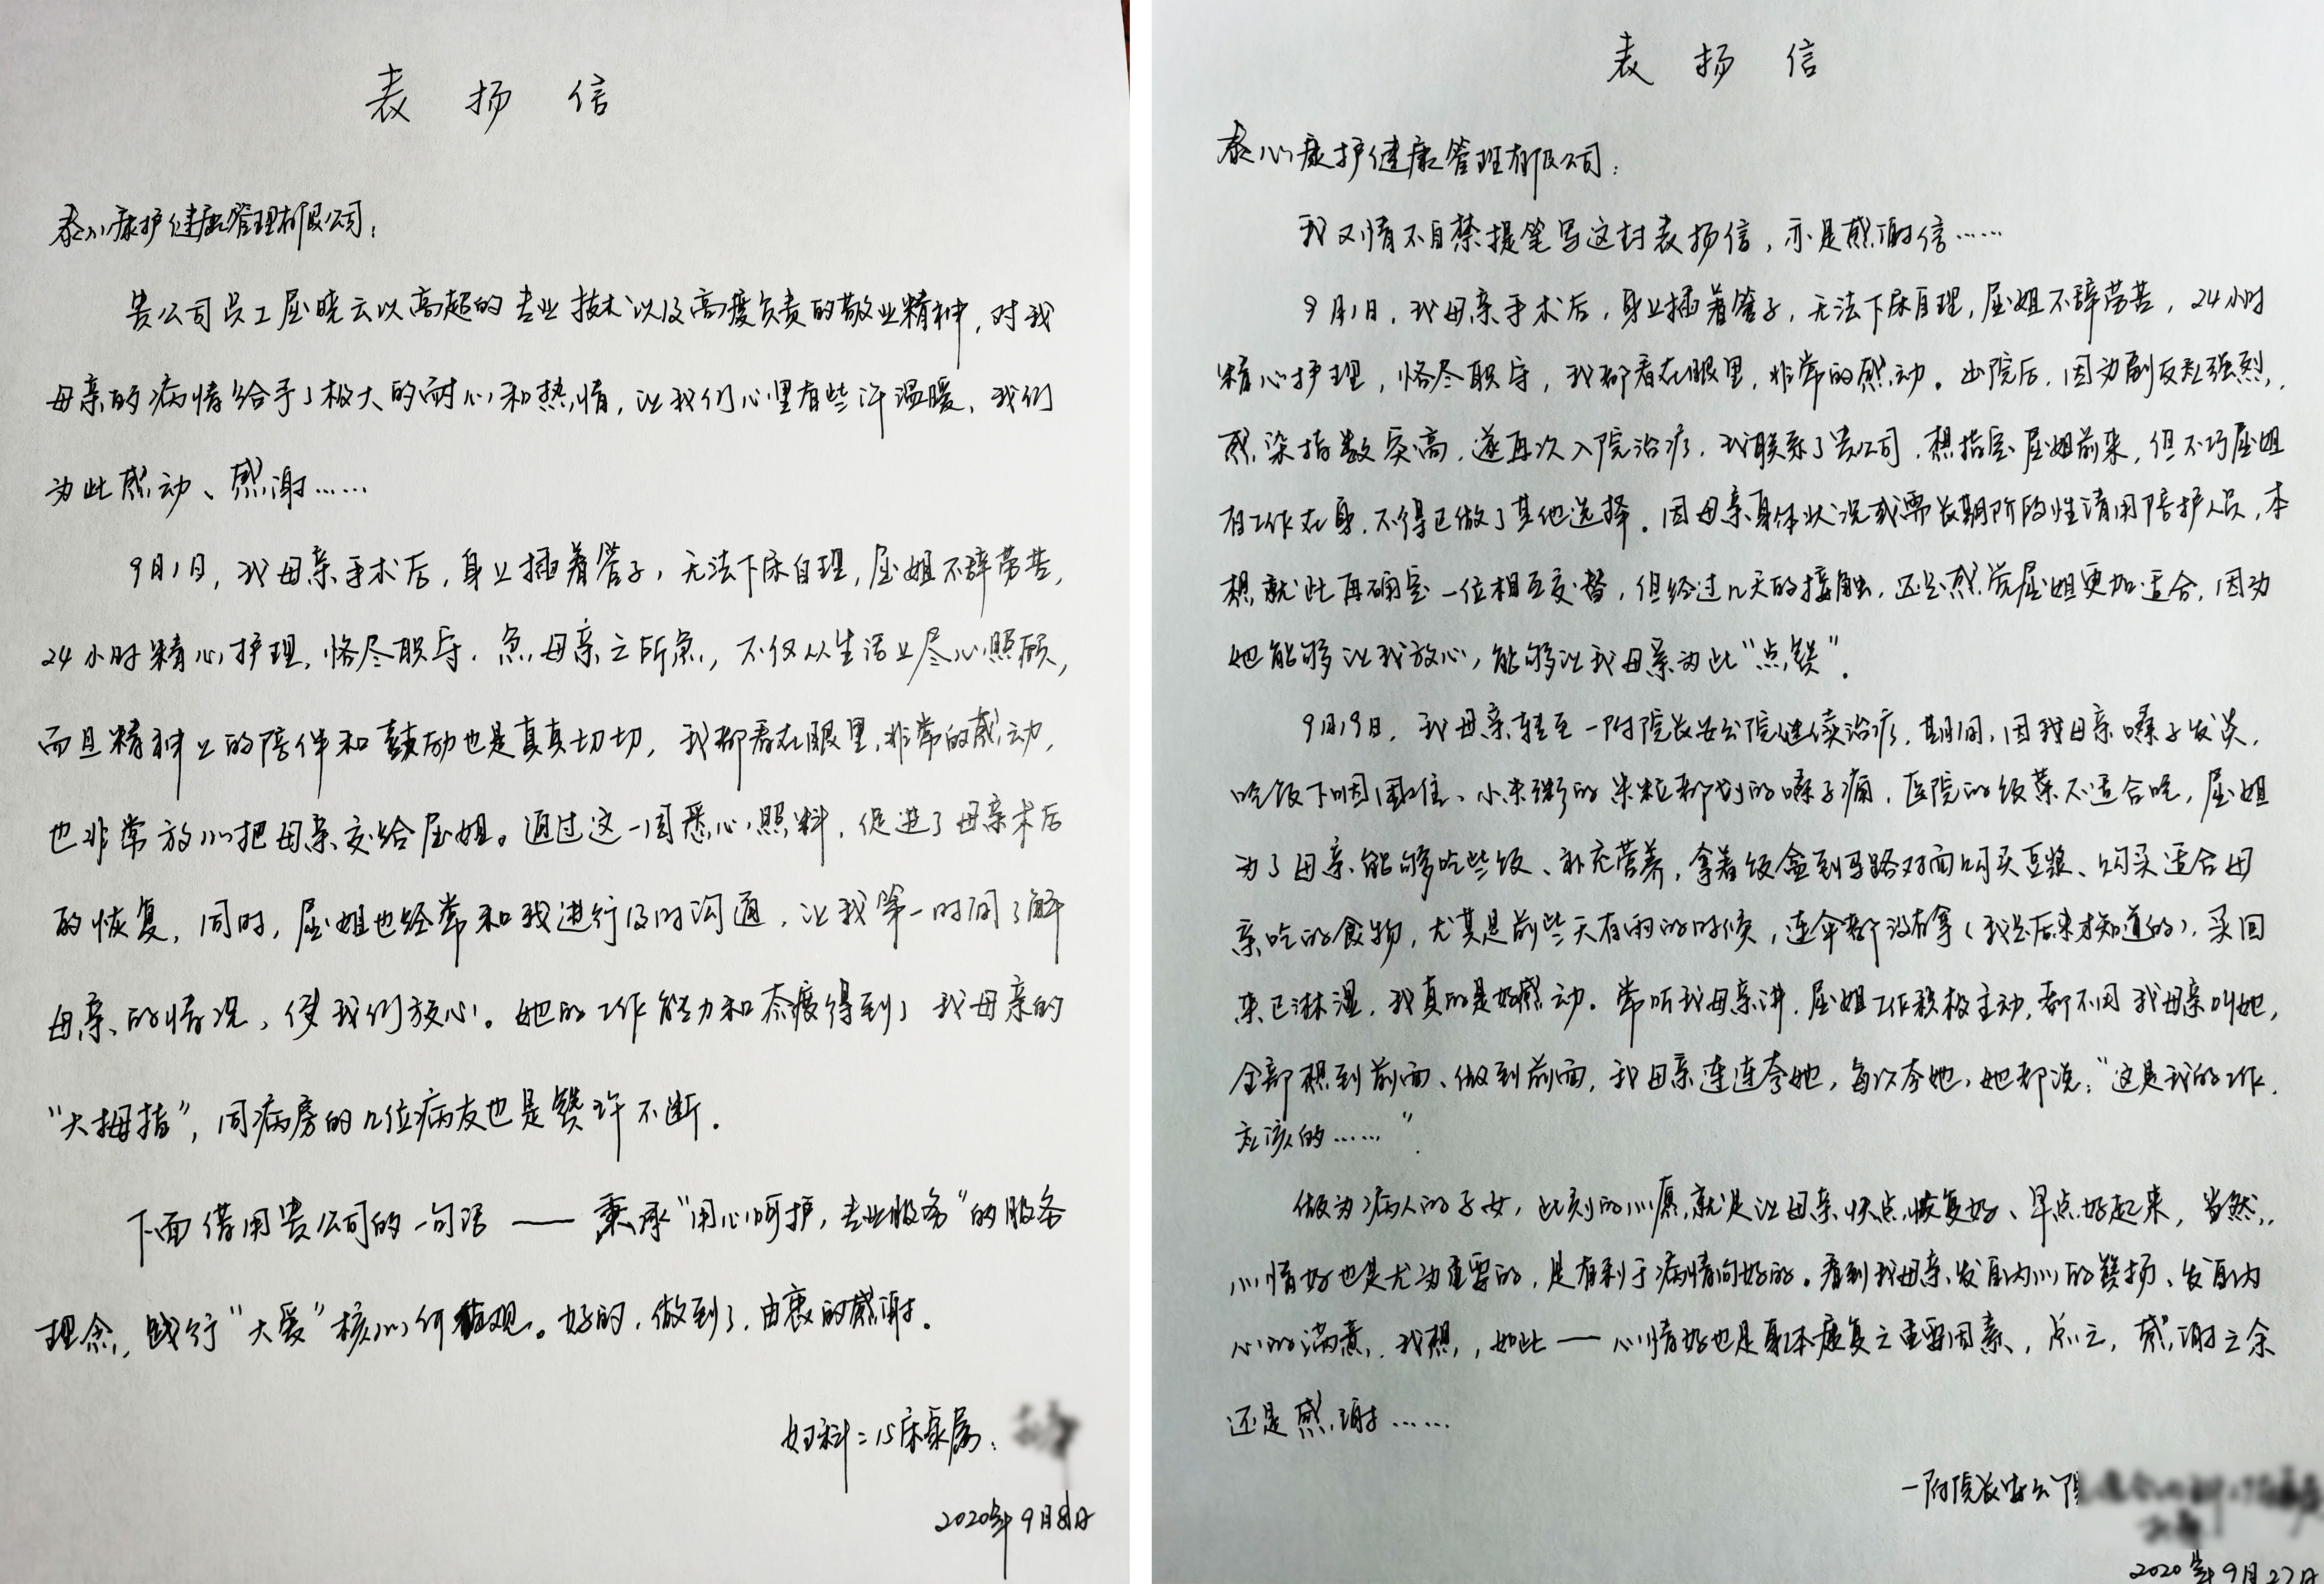 表扬信
泰心康护健康管理有限公司：
贵公司员工屈晓云以高超的专业技术以及高度负责的敬业精神，对我
母亲的病情给予了极大的耐心和热情，让我们心里有些许温暖、我们
为此感动、感谢……
9月1日，我母亲手术后，身上插着管子，无法下床自理，屈姐不辞劳苦，
24小时精心护理，恪尽职守，急母亲之所急，不仅从生活上尽心照顾，
而且精神上的陪伴和鼓励也是真真切切，我都看在眼里，非常的感动，
也非常放心把母亲交给屈姐。通过这一周悉心照料，促进了母亲术后
的恢复，同时，屈姐也经常和我进行及时沟通，让我第一时间了解
母亲的情况，使我们放心。她的工作能力和态度得到了我母亲的
“大拇指”，同病房的几位病友也是赞许不断。
下面借用贵公司的一句话——秉承“用心呵护，专业服务”的服务
理念，践行“大爱”核心价值观。好的，做到了，由衷的感谢。
妇科二15床家属：
2020年9月8日
表扬信
泰心康护健康管理有限公司：
我又情不自禁提笔写这封表扬信，亦是感谢信……
9月1日，我母亲手术后，身上插着管子，无法下床自理，屈姐不辞劳苦，24小时
精心护理，恪尽职守，我都看在眼里，非常的感动。出院后，因为副反应强烈，
感染指数突高，遂再次入院治疗，我联系了贵公司，想指定屈姐前来，但不巧屈姐
有工作在身，不得已做了其他选择。因母亲身体状况或需长期阶段性请用陪护人员，本
想就此再确定一位相互交替，但经过几天的接触，还是感觉屈姐更加适合，因为
她能够让我放心，能够让我母亲为此“点赞”。
9月19日，我母亲转至一附院长安分院继续治疗，期间，因我母亲嗓子发炎，
吃饭下咽困难、小米粥的米粒都划的嗓子痛，医院的饭菜不适合吃，屈姐
为了母亲能够吃些饭、补充营养，拿着饭盒到马路对面购买豆浆、购买适合母
亲吃的食物，尤其是前些天有雨的时候，连伞都没有拿（我是后来才知道的），买回
来已淋湿，我真的是好感动。常听我母亲讲，屈姐工作积极主动，都不用我母亲叫她，
全部想到前面、做到前面，我母亲连连夸她，每次夸她，她都说：“这是我的工作，
应该的……”。
做为病人的子女，此刻的心愿就是让母亲快点恢复好、早点好起来，当然，
心情好也是尤为重要的，是有利于病情向好的。看到我母亲发自内心的赞扬、发自内
心的满意，我想，如此——心情好也是身体康复之重要因素，总之，感谢之余
还是感谢……
一附院长安分院
2020年9月27日